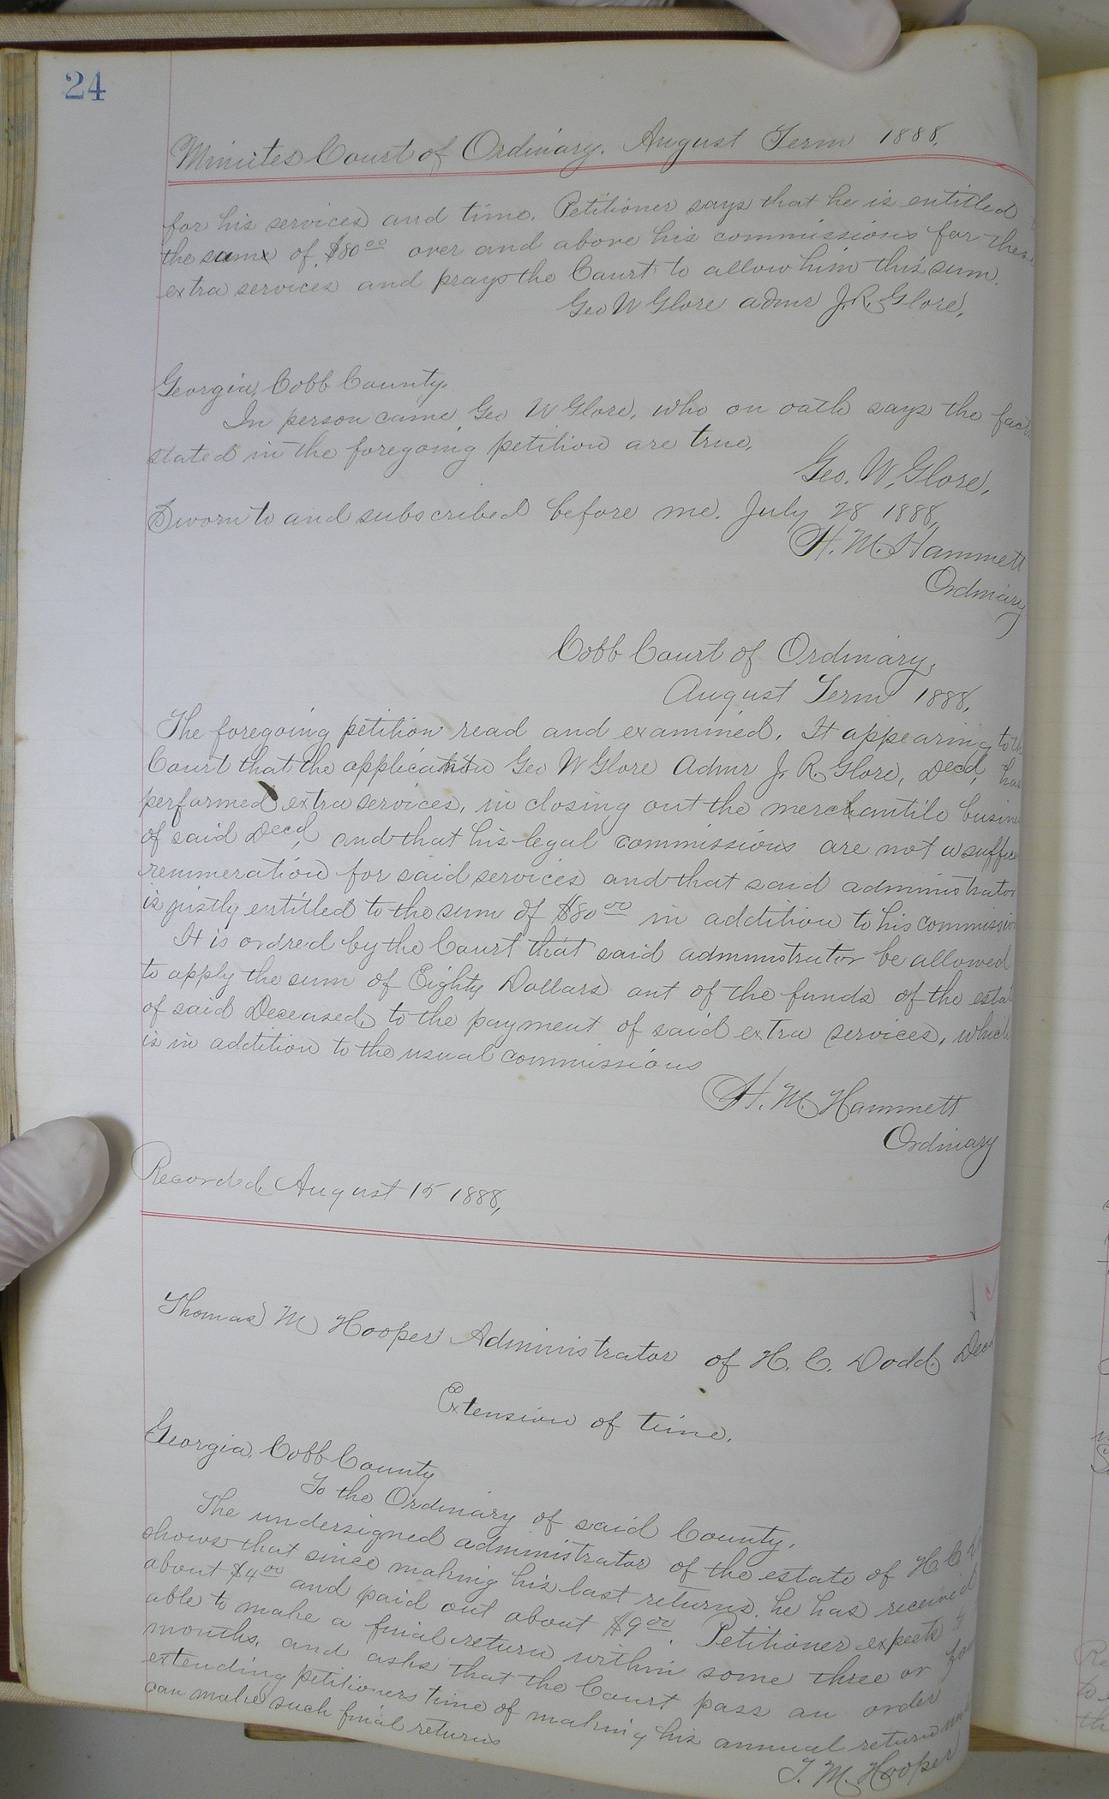 24
Minutes Court of Ordinary. August Term 1888.
for his services and time. Petitioner says that he is entitled
the sum of $80.00 over and above his commissions for these
extra services and prays the Court to allow him this sum.
Geo W Glore admr J. R. Glore.
Georgia, Cobb County.
In person came Geo W Glore, who on oath says the fact
stated in the foregoing petition are true.
Geo. W. Glore.
Sworn to and subscribed before me. July 28 1888,
H. M. Hammett
Ordinary
Cobb Court of Ordinary,
August Term 1888.
The foregoing petition read and examined. It appearing to the
Court that the application Geo W Glore Admr J. R. Glore, Decd, has
performed extra services, in closing out the merchantile busine
of said Decd, and that his legal commissions are not a suffic
remuneration for said services and that said administrator
is justly entitled to the sum of $80.00 in addition to his commission
It is ordred by the Court that said administrator be allowed
to apply the sum of Eighty Dollars out of the funds of the estat
of said Deceased, to the payment of said extra services, which
is in addition to the usual commissions
H. M. Hammett
Ordinary
Recorded, August 15 1888,
Thomas M Hooper Administrator of H. C. Dodd, Decd
Extension of time.
Georgia, Cobb County
To the Ordinary of said County.
The undersigned administrator of the estate of H C D
shows that since making his last returns, he has received
about $4.00 and paid out about $9.00. Petitioner expects to
able to make a final return within some three or four
months, and asks that the Court pass an order
extending petitioners time of making his annual return
can make such final returns
T. M. Hooper